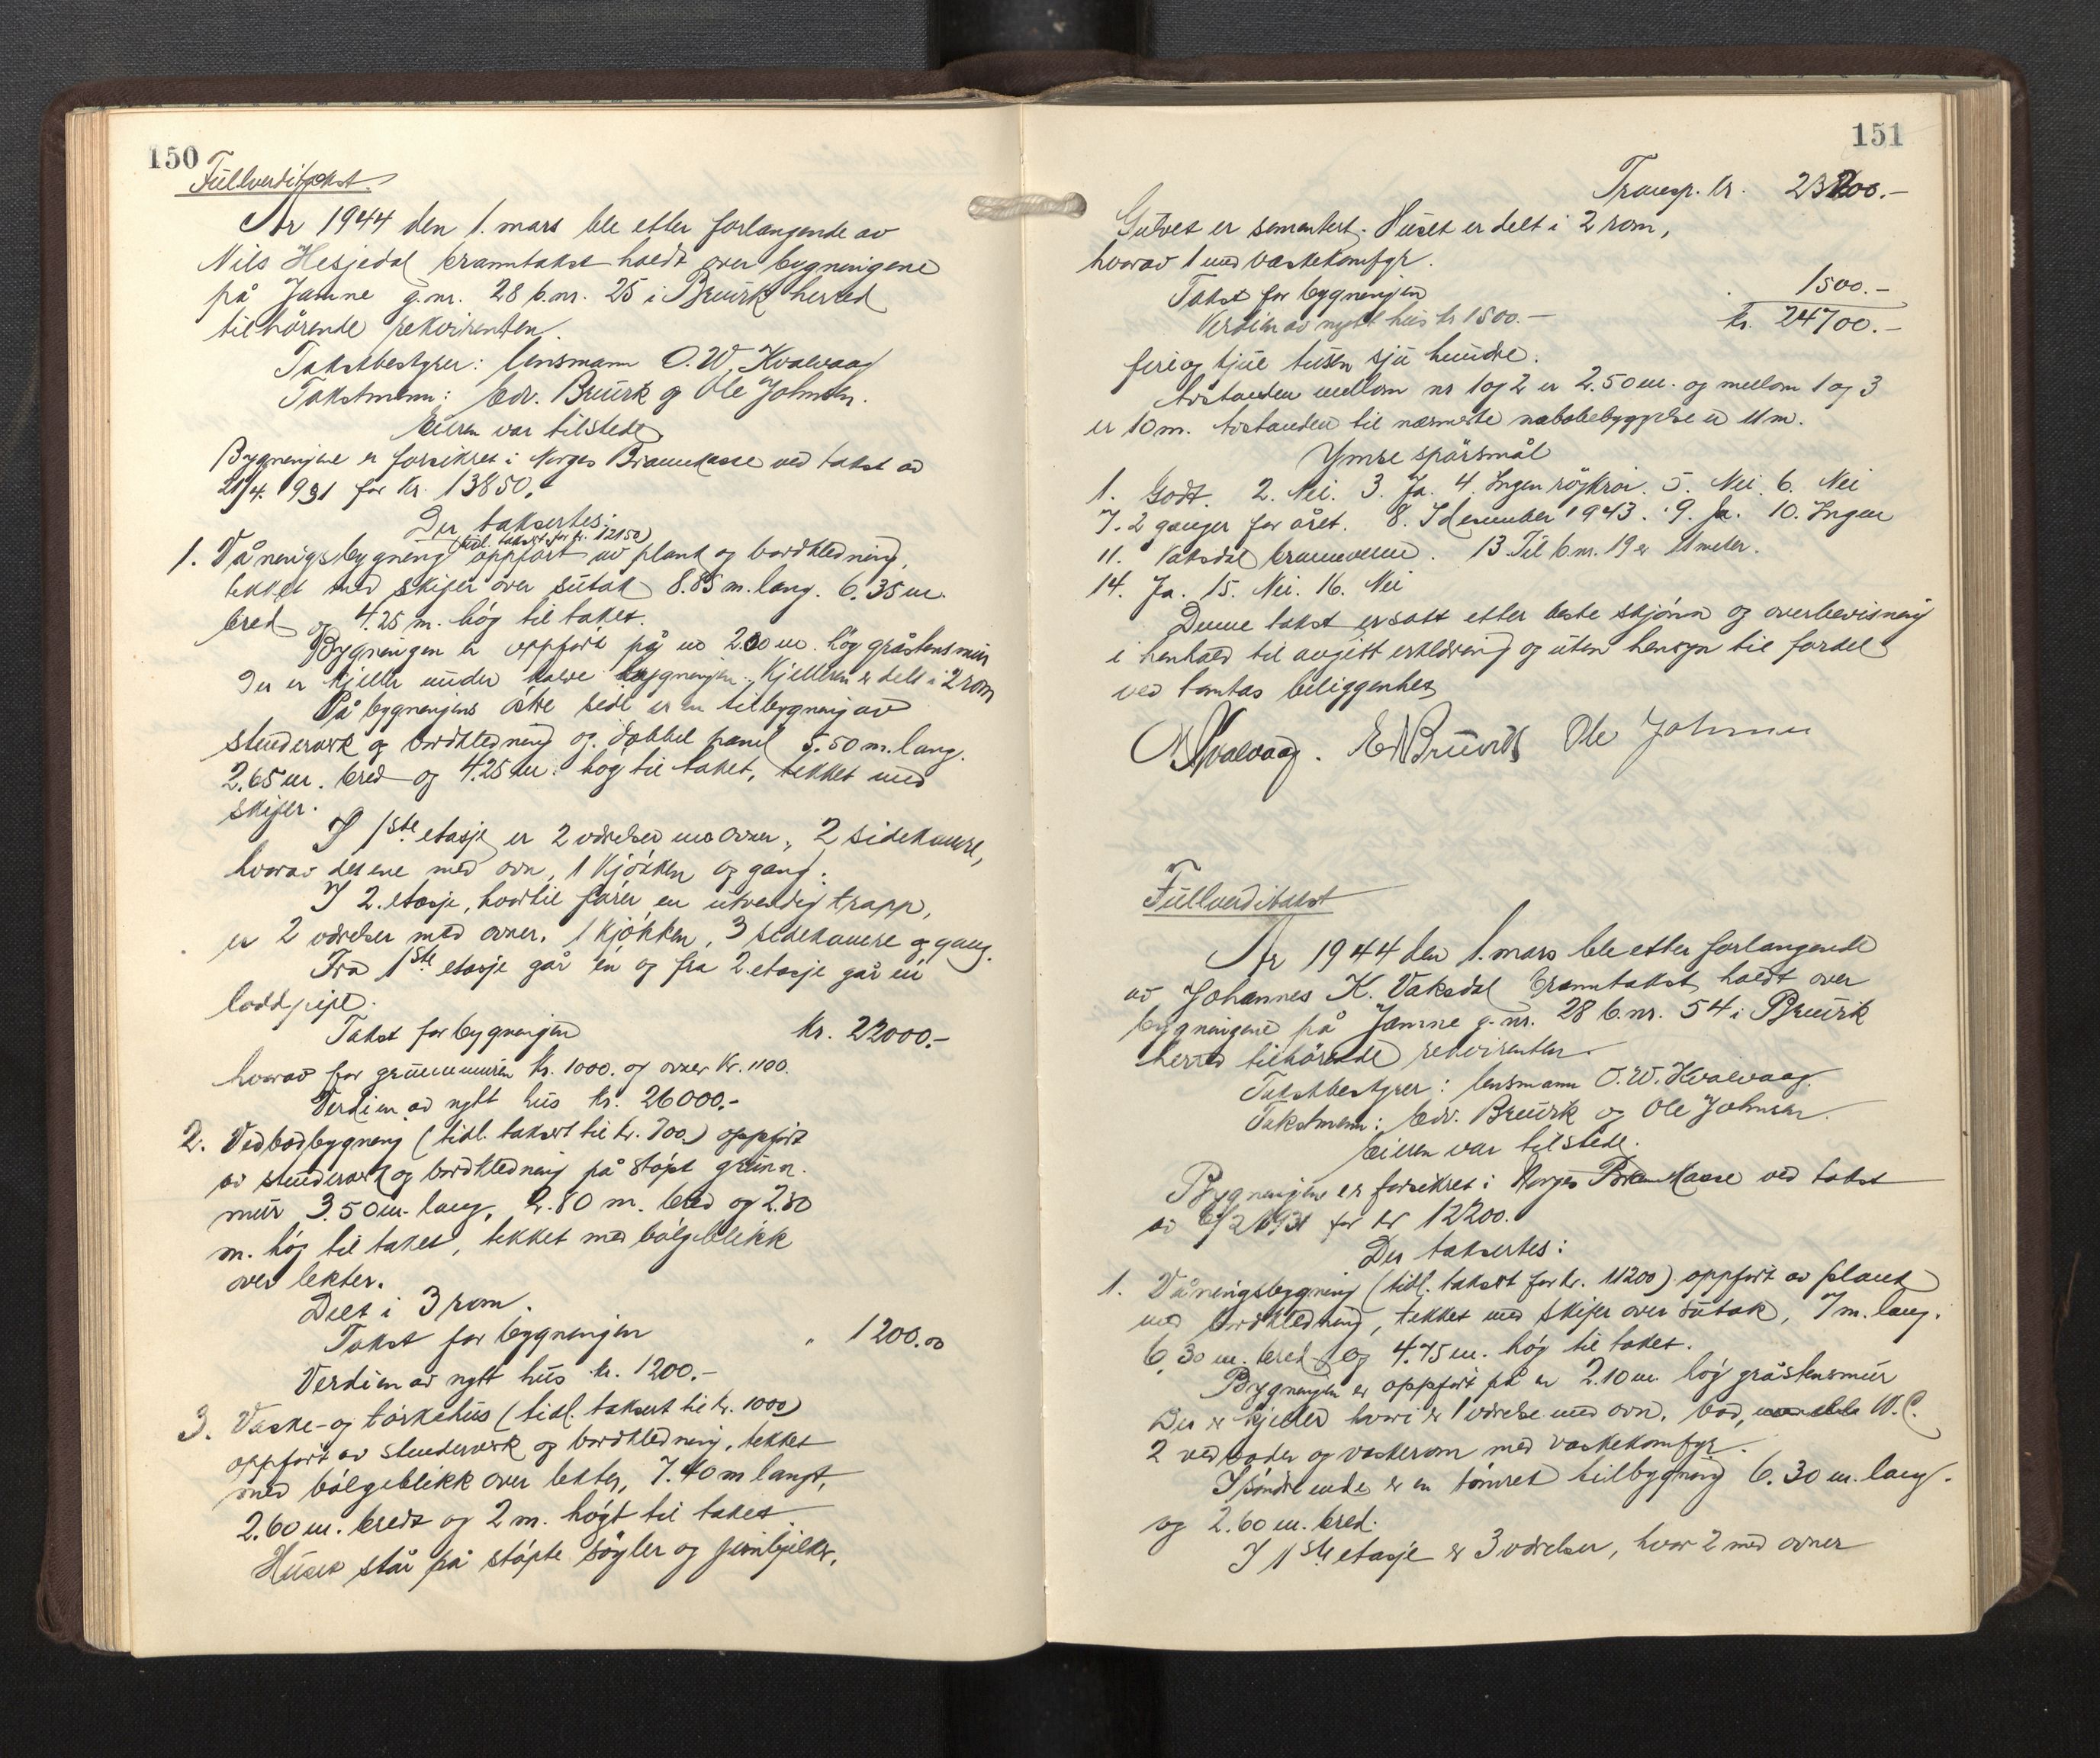 150
Fullverditakst.
År 1944 den 1. mars ble etter forlangende av
Nils Hesjedal branntakst holdt over bygningene
på Jamne g.nr. 28 b.nr. 25 i Bruvik herred
tilhørende rekvirenten.
Takstbestyrer: lensmann O. W. Kvalvaag
Takstmenn: Edv. Bruvik og Ole Johnsen.
Eieren var tilstede
Bygningene er forsikret i Norges Brannkasse ved takst av
21/4. 1931 for kr. 13850.
Der taksertes:
(tidl. taksert for kr. 12150)
1. Våningsbygning oppført av plank og bordkledning,
tekket med skifer over sutak 8.85 m. lang. 6.35 m.
bred og 4.25 m. høg til taket.
Bygningen er oppført på en 2.00 m. høg gråstensmur
Der er kjeller under halve bygningen. Kjelleren er delt i 2 rom
På bygningens østre side er en tilbygning av
stenderverk og bordkledning og dobbel panel 5.50 m. lang.
2.65 m. bred og 4.25 m. høg til taket, tekket med
skifer.
I 1ste etasje er 2 værelser med ovner, 2 sidekamre,
hvorav det ene med ovn, 1 kjøkken og gang.
I 2. etasje, hvortil fører en utvendig trapp,
er 2 værelser med ovner, 1 kjøkken, 3 sidekamre og gang.
Fra 1ste etasje går en og fra 2. etasje går en
loddpipe.
Takst for bygningen kr. 22000.-
hvorav for grunnmuren kr. 1000. og ovner kr. 1100.
Verdien av nytt hus kr. 26000.-
2. Vedbodbygning (tidl. taksert til kr. 700.) oppført
av stenderverk og bordkledning på støpt grunn
mur 3.50 m. lang, 2.80 m. bred og 2.30
m. høg til taket, tekket med bølgeblikk
over lekter.
Delt i 3 rom.
Takst for bygningen " 1200.00
Verdien av nytt hus kr. 1200.-
3. Vaske- og tørkehus (tidl. taksert til kr. 1000)
oppført av stenderverk og bordkledning, tekket
med bølgeblikk over lekter, 7.40 m langt,
2.60 m. bredt og 2 m. høgt til taket
Huset står på støpte søyler og jernbjelker,
151
Transp. kr. 23200.-
Gulvet er sementert. Huset er delt i 2 rom,
hvorav 1 med vaskekomfyr.
Takst for bygningen 1500.-
Verdien av nytt hus kr 1500.- kr. 24700.-
fire og tjue tusen sju hundre.
Avstanden mellom nr 1 og 2 er 2.50 m. og mellom 1 og 3
er 10 m. Avstanden til nærmeste nabobebyggelse er 11 m.
Ymse spørsmål
1. Godt. 2. Nei. 3. Ja. 4. Ingen røykvi. 5. Nei. 6. Nei
7. 2 ganger for året. 8. I desember 1943. 9. Ja. 10. Ingen
11. Vaksdal brannvern. 13. Til b.nr. 19 er 11 meter.
14. Ja. 15. Nei. 16. Nei
Denne takst er satt etter beste skjønn og overbevisning
i henhold til avgitt erklæring og uten hensyn til fordel
ved tomtas beliggenhet
O W Kvalvaag. Edv Bruvik Ole Johnsen
Fullverditakst
År 1944 den 1. mars ble etter forlangende
av Johannes K. Vaksdal branntakst holdt over
bygningene på Jamne g.nr. 28 b.nr. 54 i Bruvik
herred tilhørende rekvirenten.
Takstbestyrer: lensmann O. W. Kvalvaag.
Takstmenn: Edv. Bruvik og Ole Johnsen.
Eieren var tilstede.
Bygningene er forsikret i Norges Brannkasse ved takst
av 6/2 1931 for kr 12200.
Der taksertes:
1. Våningsbygning (tidl. taksert for kr. 11200) oppført av plank
med bordkledning, tekket med skifer over sutak, 7 m. lang.
6.30 m. bred og 4.75 m. høg til taket.
Bygningen er oppført på en 2.10 m. høg gråstensmur
Der er kjeller hvori er 1 værelse med ovn, bod, W.C.
2 vedboder og vaskerom med vaskekomfyr.
I søndre ende er en tømret tilbygning 6.30 m. lang.
og 2.60 m. bred.
I 1ste etasje er 3 værelser, hvor 2 med ovner